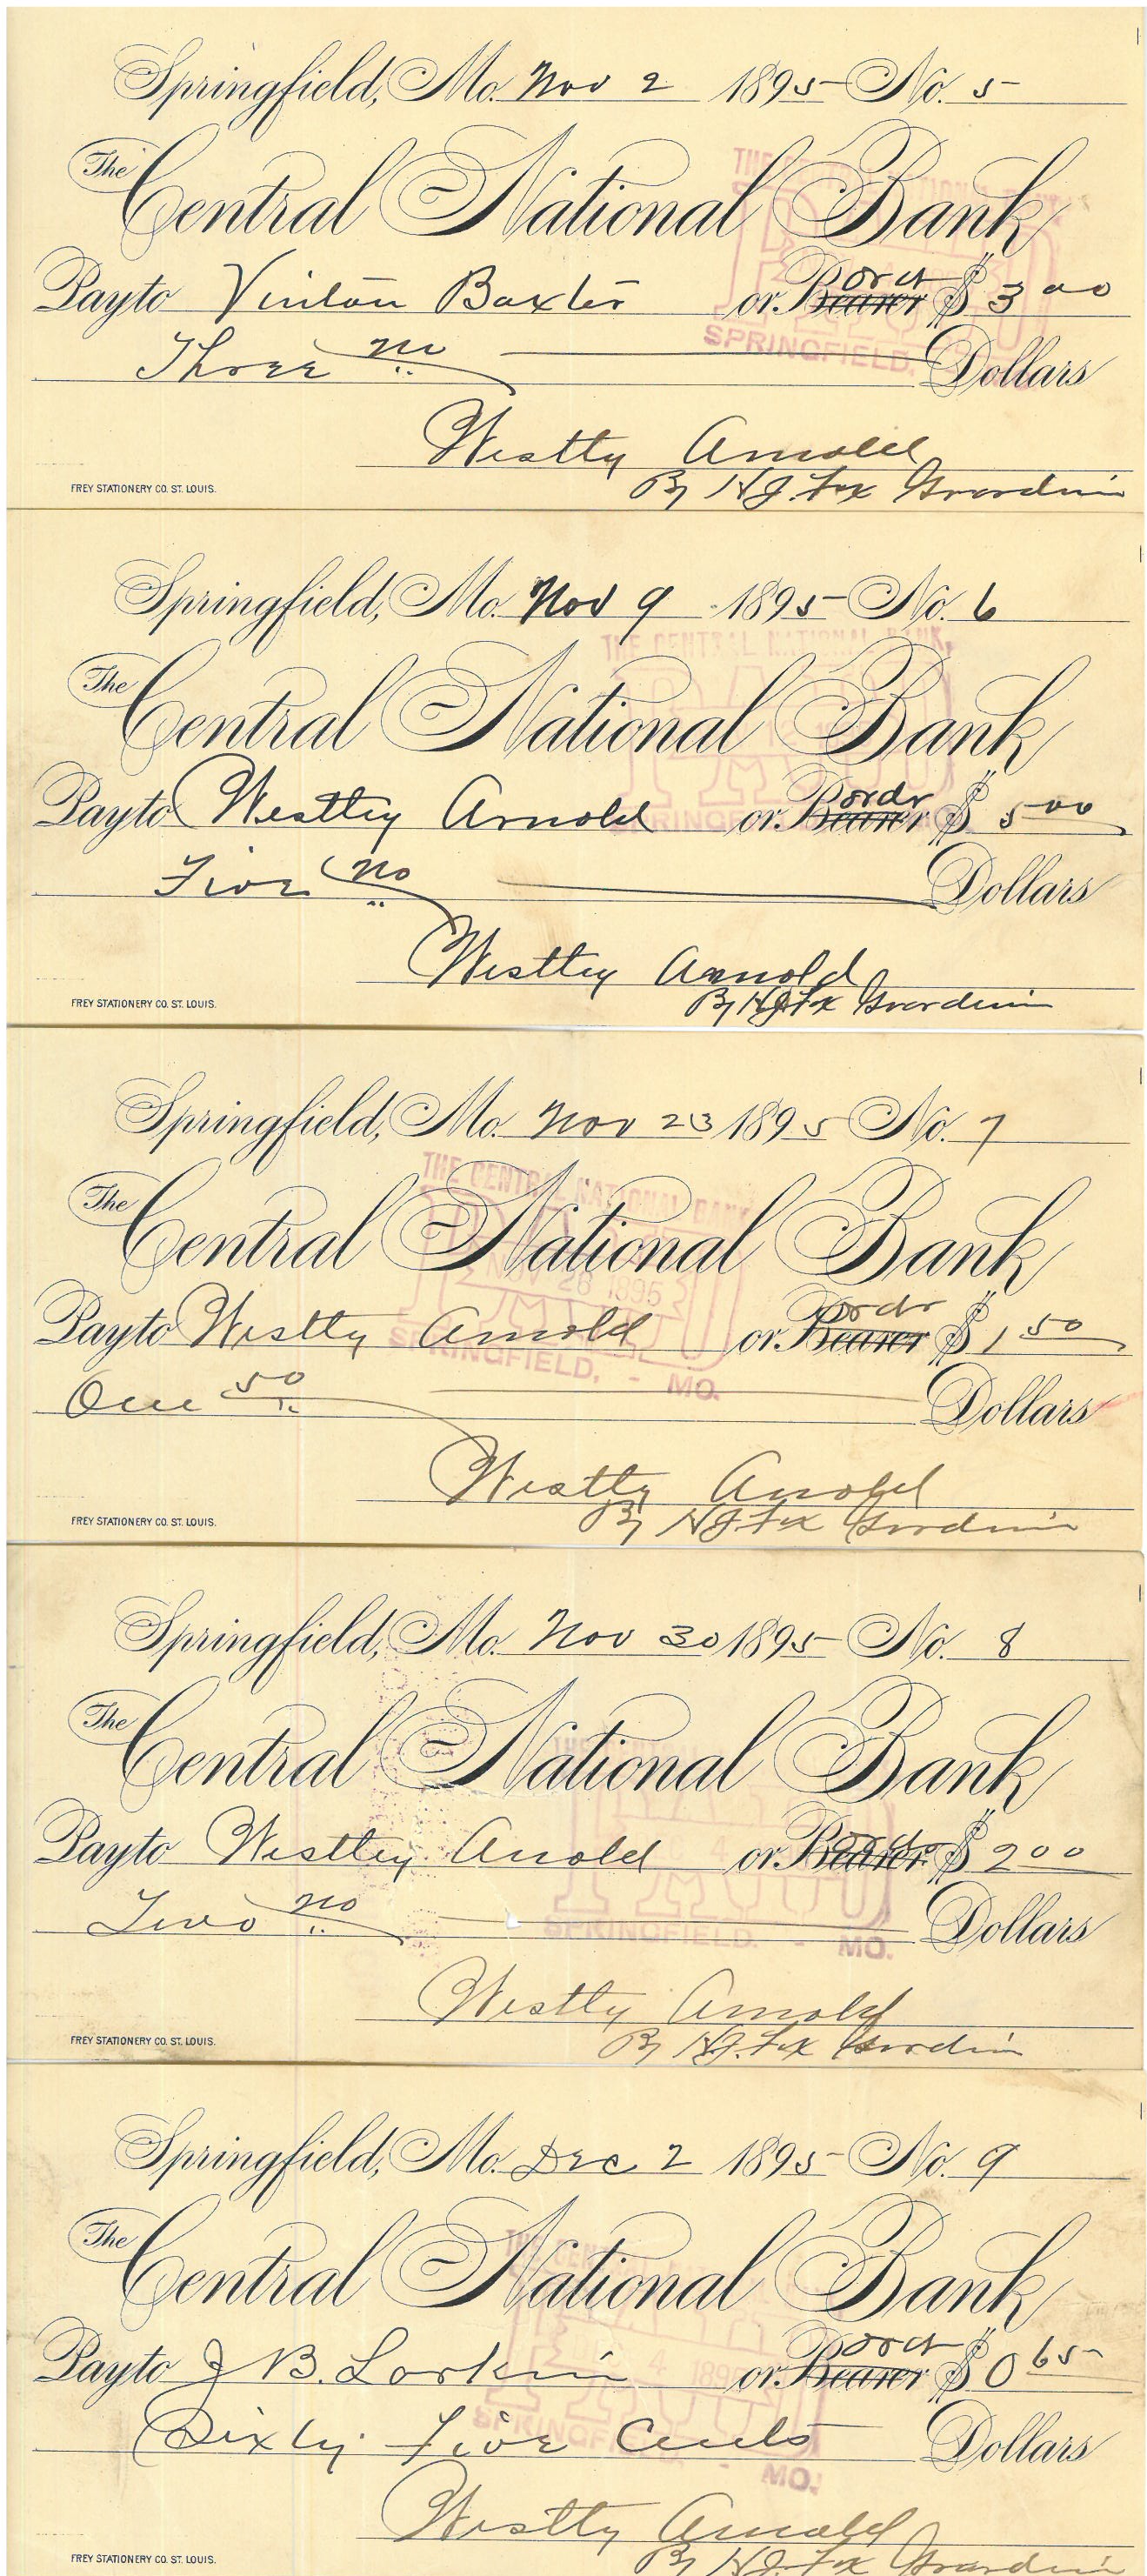 Springfield, Mo. Nov 2 1895 No. 5
The Central National Bank
Pay to Vinton Baxter or Bearer ordr $ 3 00
Three no Dollars
Westley Arnold
By H J. Fox Guardian
FREY STATIONERY CO. ST. LOUIS.
THE CENTRAL NATIONAL BANK
SPRINGFIELD.
Springfield, Mo. Nov 9 1895 No. 6
The Central National Bank
Pay to Westley Arnold or Bearer ordr $ 5 00
Five no Dollars
Westley Arnold
By H J Fox Guardian
FREY STATIONERY CO. ST. LOUIS.
THE CENTRAL NATIONAL BANK,
Springfield, Mo. Nov 23 1895 No. 7
The Central National Bank
Pay to Westley Arnold or Bearer ordr $ 1 50
One 50 Dollars
Westley Arnold
By H J Fox Guardian
FREY STATIONERY CO. ST. LOUIS.
THE CENTRAL NATIONAL BANK
PAID
NOV 26 1895
SPRINGFIELD, - MO.
Springfield, Mo. Nov 30 1895 No. 8
The Central National Bank
Pay to Westley Arnold or Bearer ordr $ 2 00
Two no Dollars
Westley Arnold
By H J. Fox Guardian
FREY STATIONERY CO. ST. LOUIS.
SPRINGFIELD. - MO.
Springfield, Mo. Dec 2 1895 No. 9
The Central National Bank
Pay to J B. Larkin or Bearer ordr $ 0 65
Sixty Five Cents Dollars
Westley Arnold
By H J. Fox Guardian
FREY STATIONERY CO. ST. LOUIS.
SPRINGFIELD. - MO.